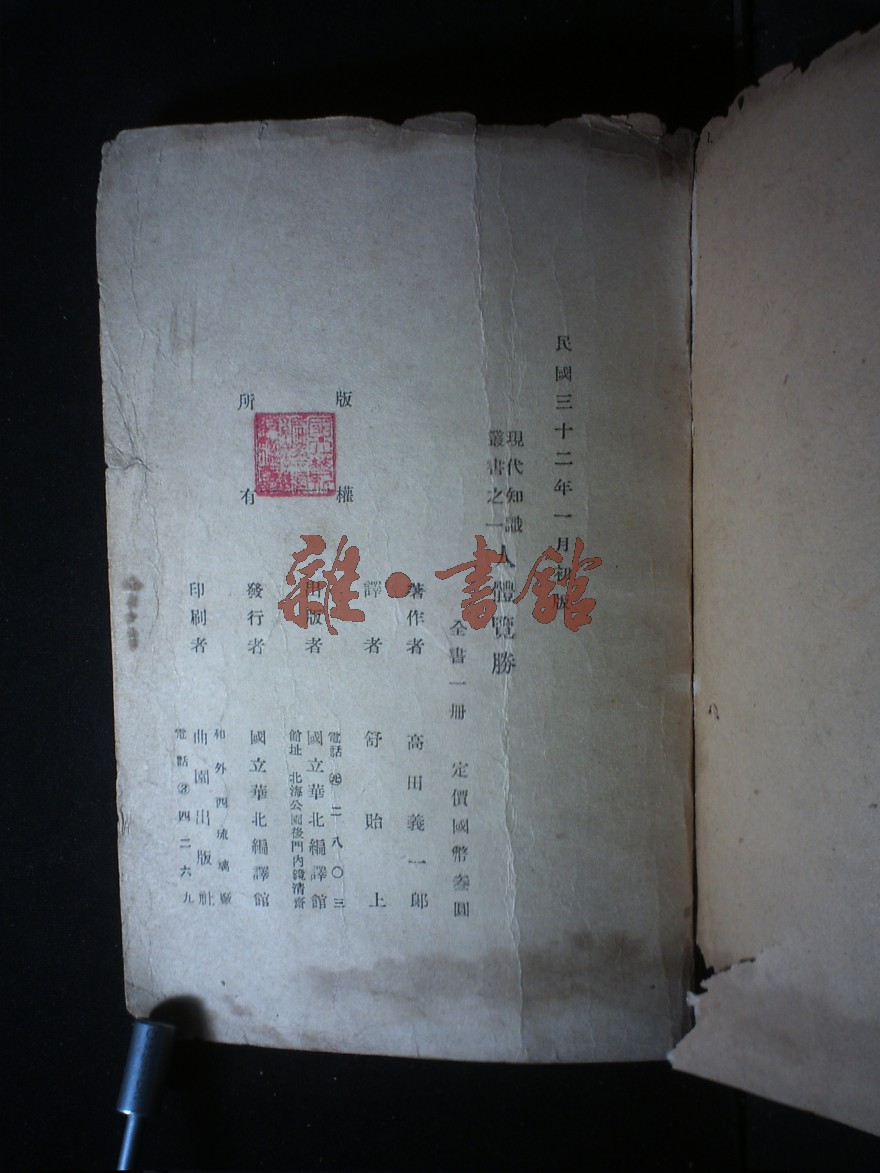 民國三十二年一月初版
現代知識
叢書之一
人體覽勝
全書一册 定價國幣叁圓
著作者 高田義一郎
譯者 舒貽上
出版者 國立華北編譯館
電話 二八〇三
館址 北海公園後門內鏡清齋
發行者 國立華北編譯館
印刷者 曲園出版社
和外西琉璃廠
電話 四二六九
版權所有
雜·書館